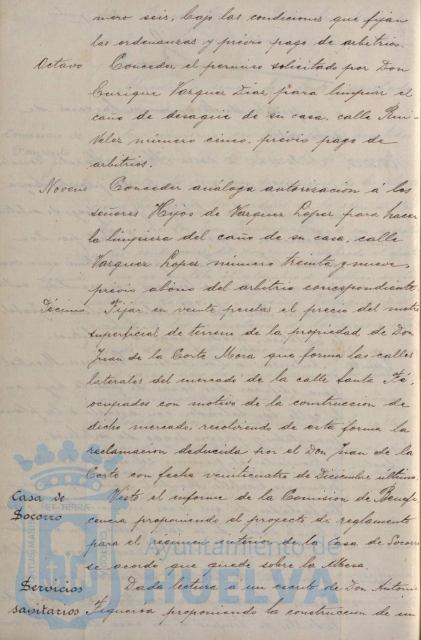 mero seis, bajo las condiciones que fijan
las ordenanzas y prévio pago de arbitrios.
Octavo Conceder el permiso solicitado por Don
Enrique Vazquez Diaz para limpiar el
caño de desagüe de su casa, calle Rui
Velez número cinco, prévio pago de
arbitrios.
Noveno Conceder análoga autorizacion á los
señores Hijos de Vazquez Lopez para hacer
la limpieza del caño de su casa, calle
Vazquez Lopez número treinta y nueve,
prévio abono del arbitrio correspondiente.
Décimo Fijar en veinte pesetas el precio del metro
superficial de terreno de la propiedad de Don
Juan de la Corte Mora que forma las calles
laterales del mercado de la calle Santa Fé,
ocupados con motivo de la construccion de
dicho mercado, resolviendo de esta forma la
reclamacion deducida por el Don Juan de la
Corte con fecha veinticuatro de Diciembre último.
Casa de Socorro Visto el informe de la Comision de Benefi
cencia proponiendo el proyecto de reglamento
para el regimen interior de la Casa de Socorro
se acordó que quede sobre la Mesa.
Servicios sanitarios. Dada lectura á un escrito de Don Antonio
Figueroa proponiendo la construccion de un
Ayuntamiento de
HUELVA